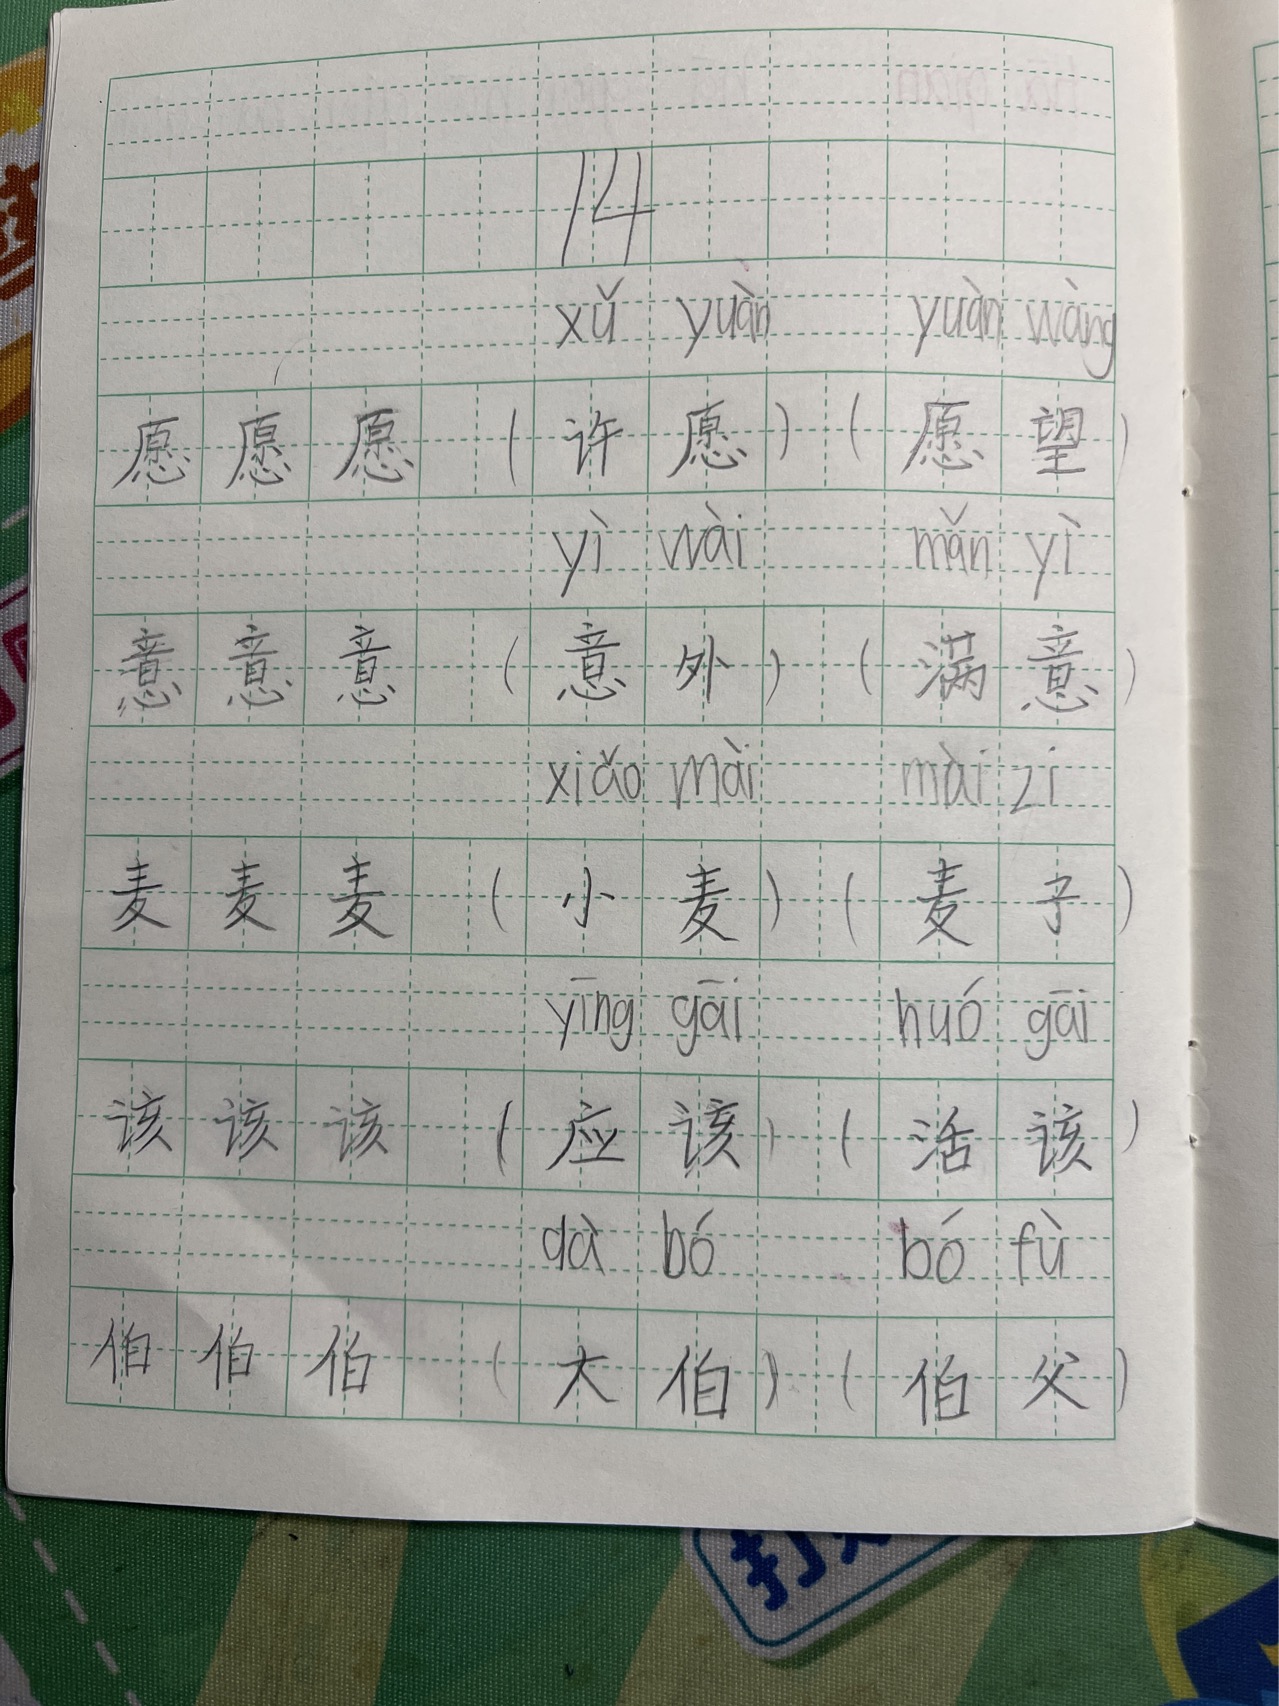 14
xǔ yuàn yuàn wàng
愿 愿 愿 (许愿) (愿望)
yì wài mǎn yì
意 意 意 (意外) (满意)
xiǎo mài mài zi
麦 麦 麦 (小麦) (麦子)
yīng gāi huó gāi
该 该 该 (应该) (活该)
dà bó bó fù
伯 伯 伯 (大伯) (伯父)
打